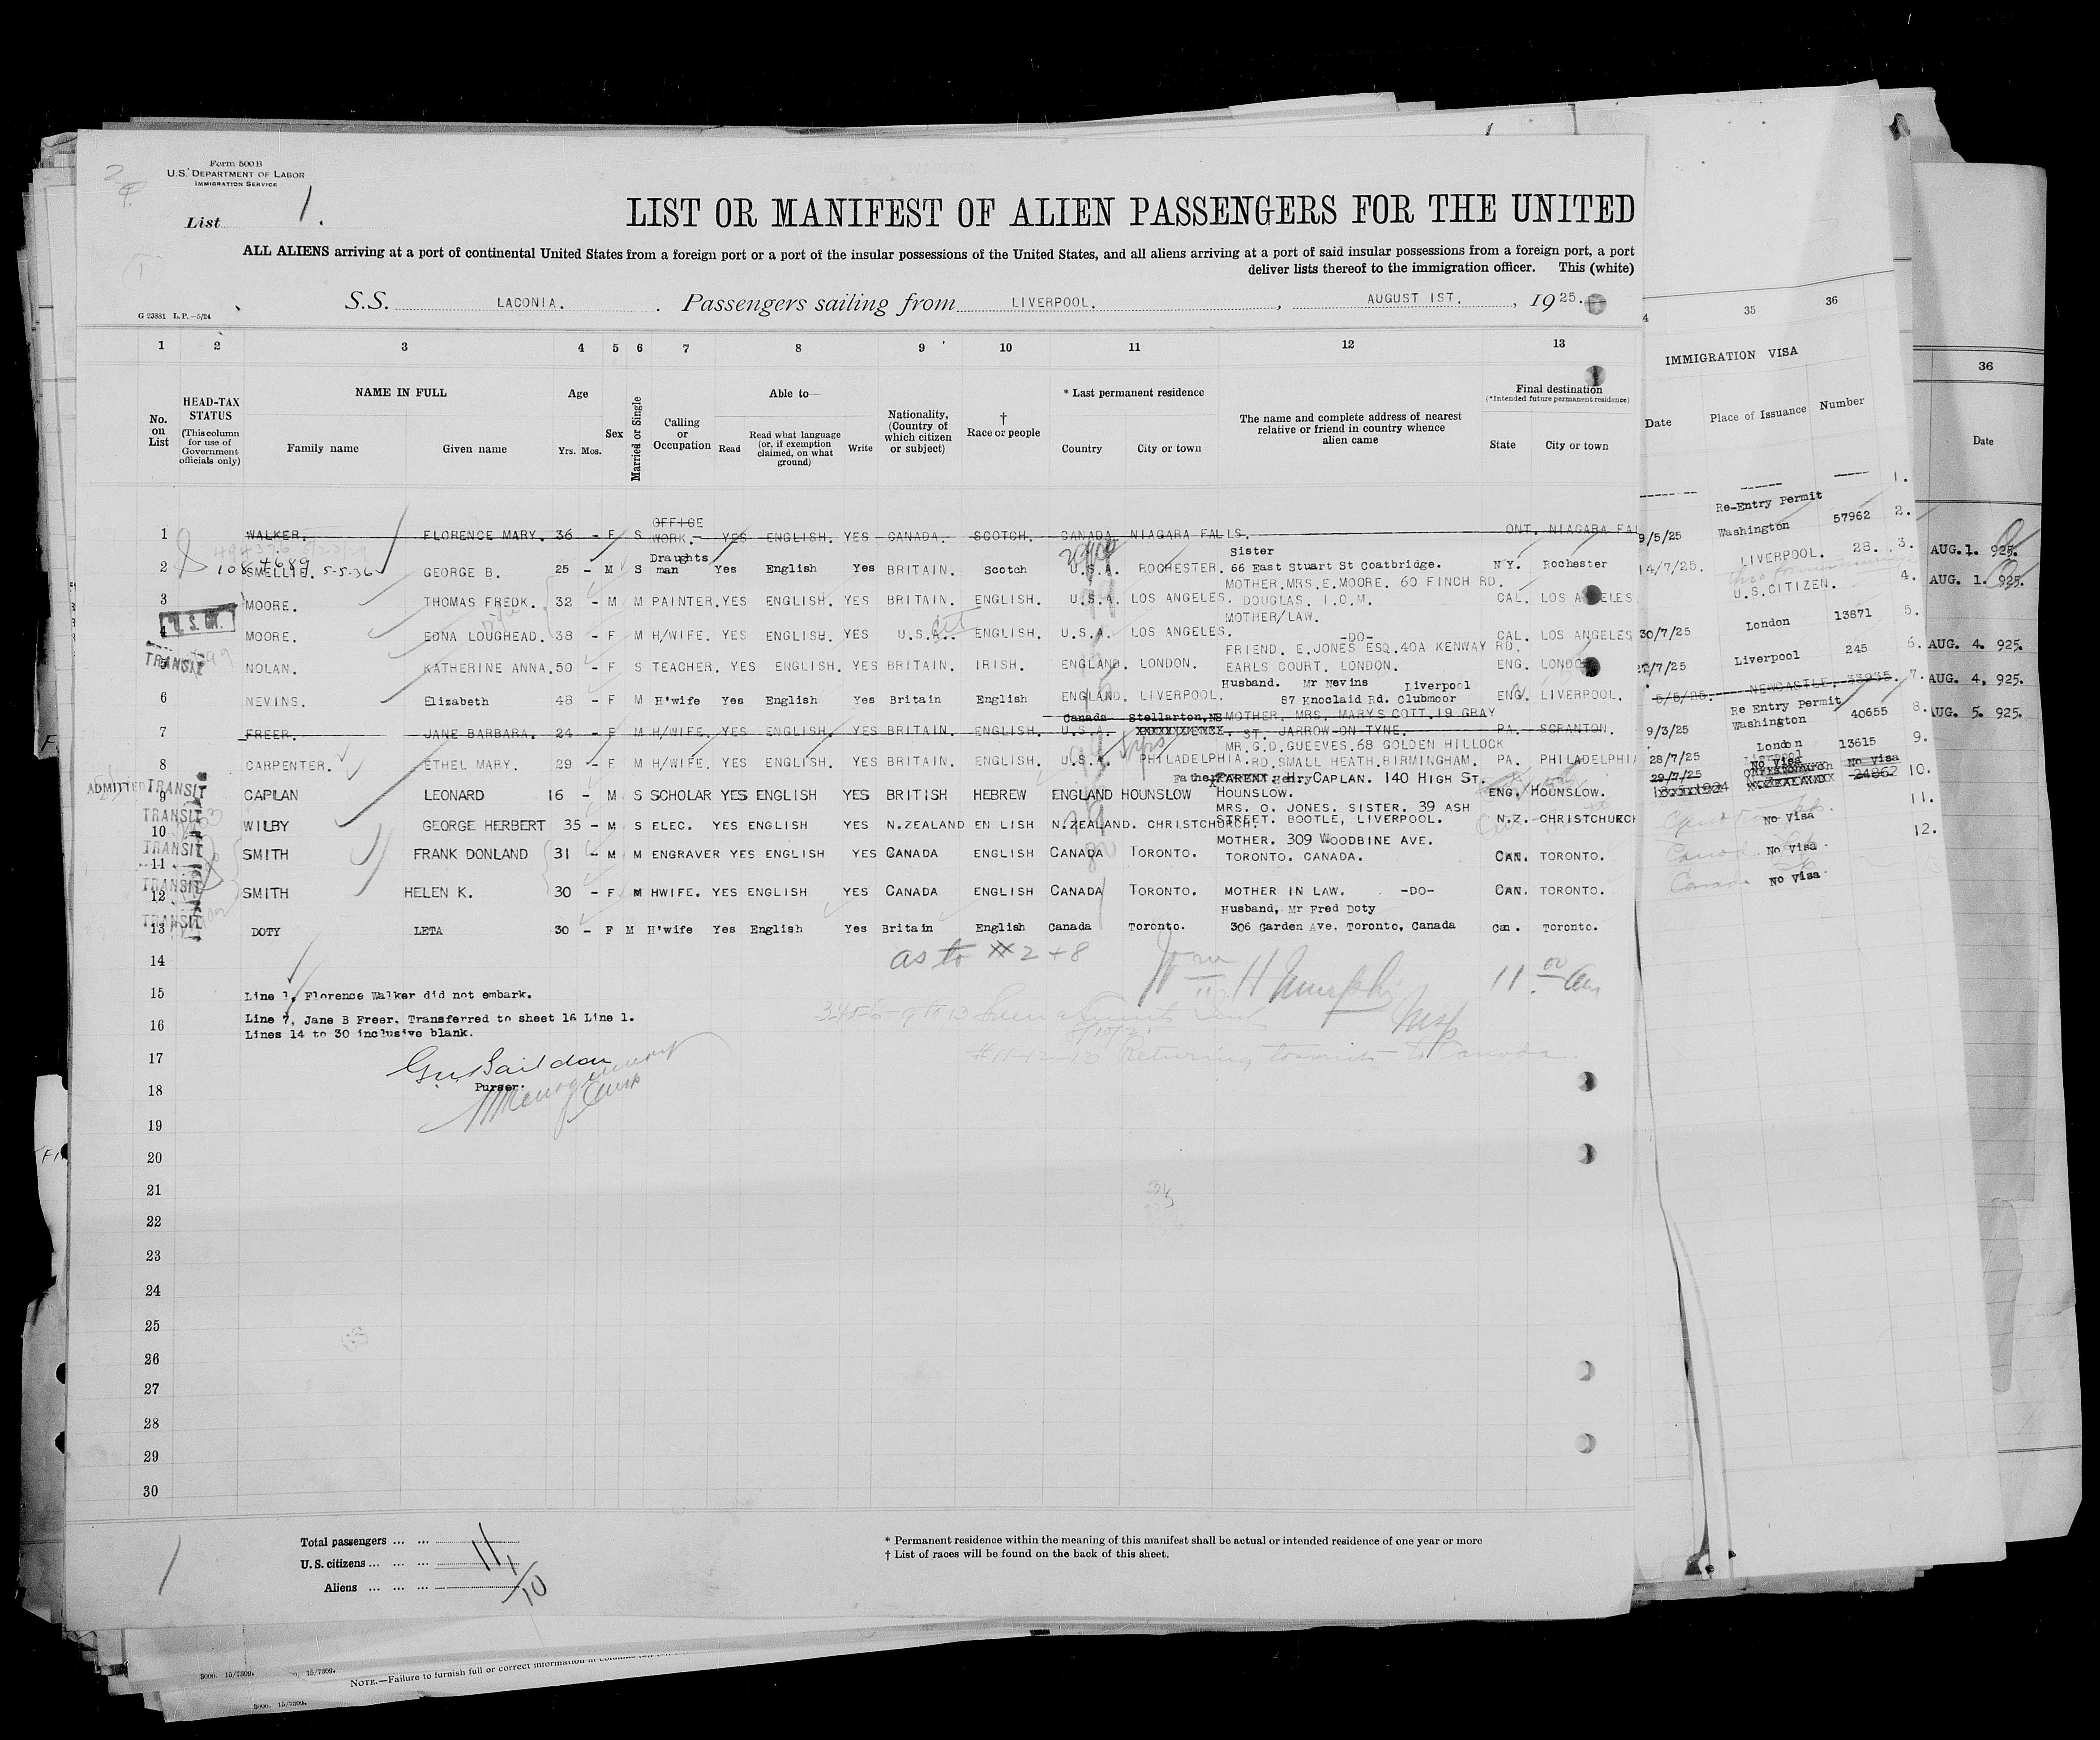 Form 500 B
U.S. DEPARTMENT OF LABOR
IMMIGRATION SERVICE
List 1.
LIST OR MANIFEST OF ALIEN PASSENGERS FOR THE UNITED
ALL ALIENS arriving at a port of continental United States from a foreign port or a port of the insular possessions of the United States, and all aliens arriving at a port of said insular possessions from a foreign port, a port
deliver lists thereof to the immigration officer. This (white)
S.S. LACONIA. Passengers sailing from LIVERPOOL. , AUGUST 1ST. , 1925.
G 23881 L.P.—5/24
1 2 3 4 5 6 7 8 9 10 11 12 13
No. on List
HEAD-TAX STATUS (This column for use of Government officials only)
NAME IN FULL
Family name Given name
Age
Yrs. Mos.
Sex
Married or Single
Calling or Occupation
Able to—
Read
Read what language (or, if exemption claimed, on what ground)
Write
Nationality, (Country of which citizen or subject)
† Race or people
* Last permanent residence
Country City or town
The name and complete address of nearest relative or friend in country whence alien came
Final destination
(*Intended future permanent residence)
State City or town
1 WALKER. FLORENCE MARY. 36 – F S OFFICE WORK. YES ENGLISH. YES CANADA. SCOTCH. CANADA. NIAGARA FALLS. ONT. NIAGARA FAL
1084689 5-5-36
2 SMELLIE. GEORGE B. 25 – M S Draughts man Yes English Yes BRITAIN. Scotch U.S.A. ROCHESTER. Sister 66 East Stuart St Coatbridge. N.Y. Rochester
3 MOORE. THOMAS FREDK. 32 – M M PAINTER. YES ENGLISH. YES BRITAIN. ENGLISH. U.S.A. LOS ANGELES. MOTHER.MRS.E.MOORE. 60 FINCH RD. DOUGLAS. I.O.M. CAL. LOS ANGELES
U.S. CIT.
4 MOORE. EDNA LOUGHEAD. 38 – F M H/WIFE. YES ENGLISH. YES U.S.A. ENGLISH. U.S.A. LOS ANGELES. MOTHER/LAW. -DO- CAL. LOS ANGELES
TRANSIT
5 NOLAN. KATHERINE ANNA. 50 – F S TEACHER. YES ENGLISH. YES BRITAIN. IRISH. ENGLAND. LONDON. FRIEND. E.JONES ESQ.40A KENWAY RD. EARLS COURT. LONDON. ENG. LONDON
6 NEVINS. Elizabeth 48 – F M H'wife Yes English Yes Britain English ENGLAND. LIVERPOOL. Husband. Mr Nevins Liverpool 87 Knoclaid Rd. Clubmoor ENG. LIVERPOOL.
7 FREER. JANE BARBARA. 24 – F M H/WIFE. YES ENGLISH. YES BRITAIN. ENGLISH. Canada Stellarton,NS U.S.A. MOTHER. MRS. MARYSCOTT.19 GRAY ST. JARROW-ON-TYNE. PA. SCRANTON.
8 CARPENTER. ETHEL MARY. 29 – F M H/WIFE. YES ENGLISH. YES BRITAIN. ENGLISH. U.S.A. PHILADELPHIA. MR.G.D.GUEEVES.68 GOLDEN HILLOCK RD.SMALL HEATH.BIRMINGHAM. PA. PHILADELPHIA
ADMITTED TRANSIT
9 CAPLAN LEONARD 16 – M S SCHOLAR YES ENGLISH YES BRITISH HEBREW ENGLAND HOUNSLOW Father PARENT. Henry CAPLAN. 140 HIGH ST. HOUNSLOW. ENG. HOUNSLOW.
TRANSIT
10 WILBY GEORGE HERBERT 35 – M S ELEC. YES ENGLISH YES N.ZEALAND EN LISH N.ZEALAND. CHRISTCHURCH. MRS. O. JONES. SISTER. 39 ASH STREET. BOOTLE, LIVERPOOL. N.Z. CHRISTCHURCH
TRANSIT
11 SMITH FRANK DONLAND 31 – M M ENGRAVER YES ENGLISH YES CANADA ENGLISH CANADA TORONTO. MOTHER. 309 WOODBINE AVE. TORONTO. CANADA. CAN. TORONTO.
TRANSIT
12 SMITH HELEN K. 30 – F M HWIFE. YES ENGLISH YES CANADA ENGLISH CANADA TORONTO. MOTHER IN LAW. -DO- CAN. TORONTO.
TRANSIT
13 DOTY LETA 30 – F M H'wife Yes English Yes Britain English Canada Toronto. Husband, Mr Fred Doty 306 Garden Ave. Toronto, Canada Can. Toronto.
14 as to # 2 + 8
11 00 am
15 Line 1, Florence Walker did not embark.
Line 7, Jane B Freer, Transferred to sheet 16 Line 1.
16 Lines 14 to 30 inclusive blank.
# 11-12-13 Returning tourists to Canada.
17
Purser.
18
19
20
21
22
23
24
25
26
27
28
29
30
Total passengers ... ... 11
U.S. citizens ... ... ... 1
Aliens ... ... ... 10
* Permanent residence within the meaning of this manifest shall be actual or intended residence of one year or more
† List of races will be found on the back of this sheet.
35 36
IMMIGRATION VISA
Date Place of Issuance Number
1.
9/5/25 Re-Entry Permit Washington 57962 2.
14/7/25. LIVERPOOL. 28. 3.
U.S.CITIZEN. 4.
30/7/25 London 13871 5.
27/7/25 Liverpool 245 6.
5/5/25. NEWCASTLE. 33935. 7.
9/3/25 Re Entry Permit Washington 40655 8.
28/7/25 London 13615 9.
29/7/25 No Visa No Visa
24862 10.
11.
No Visa 12.
No Visa
No Visa
36
Date
AUG. 1. 925.
AUG. 1. 925.
AUG. 4. 925.
AUG. 4. 925.
AUG. 5. 925.
5000. 15/7309.
15/7309.
NOTE.—Failure to furnish full or correct information in
5000. 15/7309.